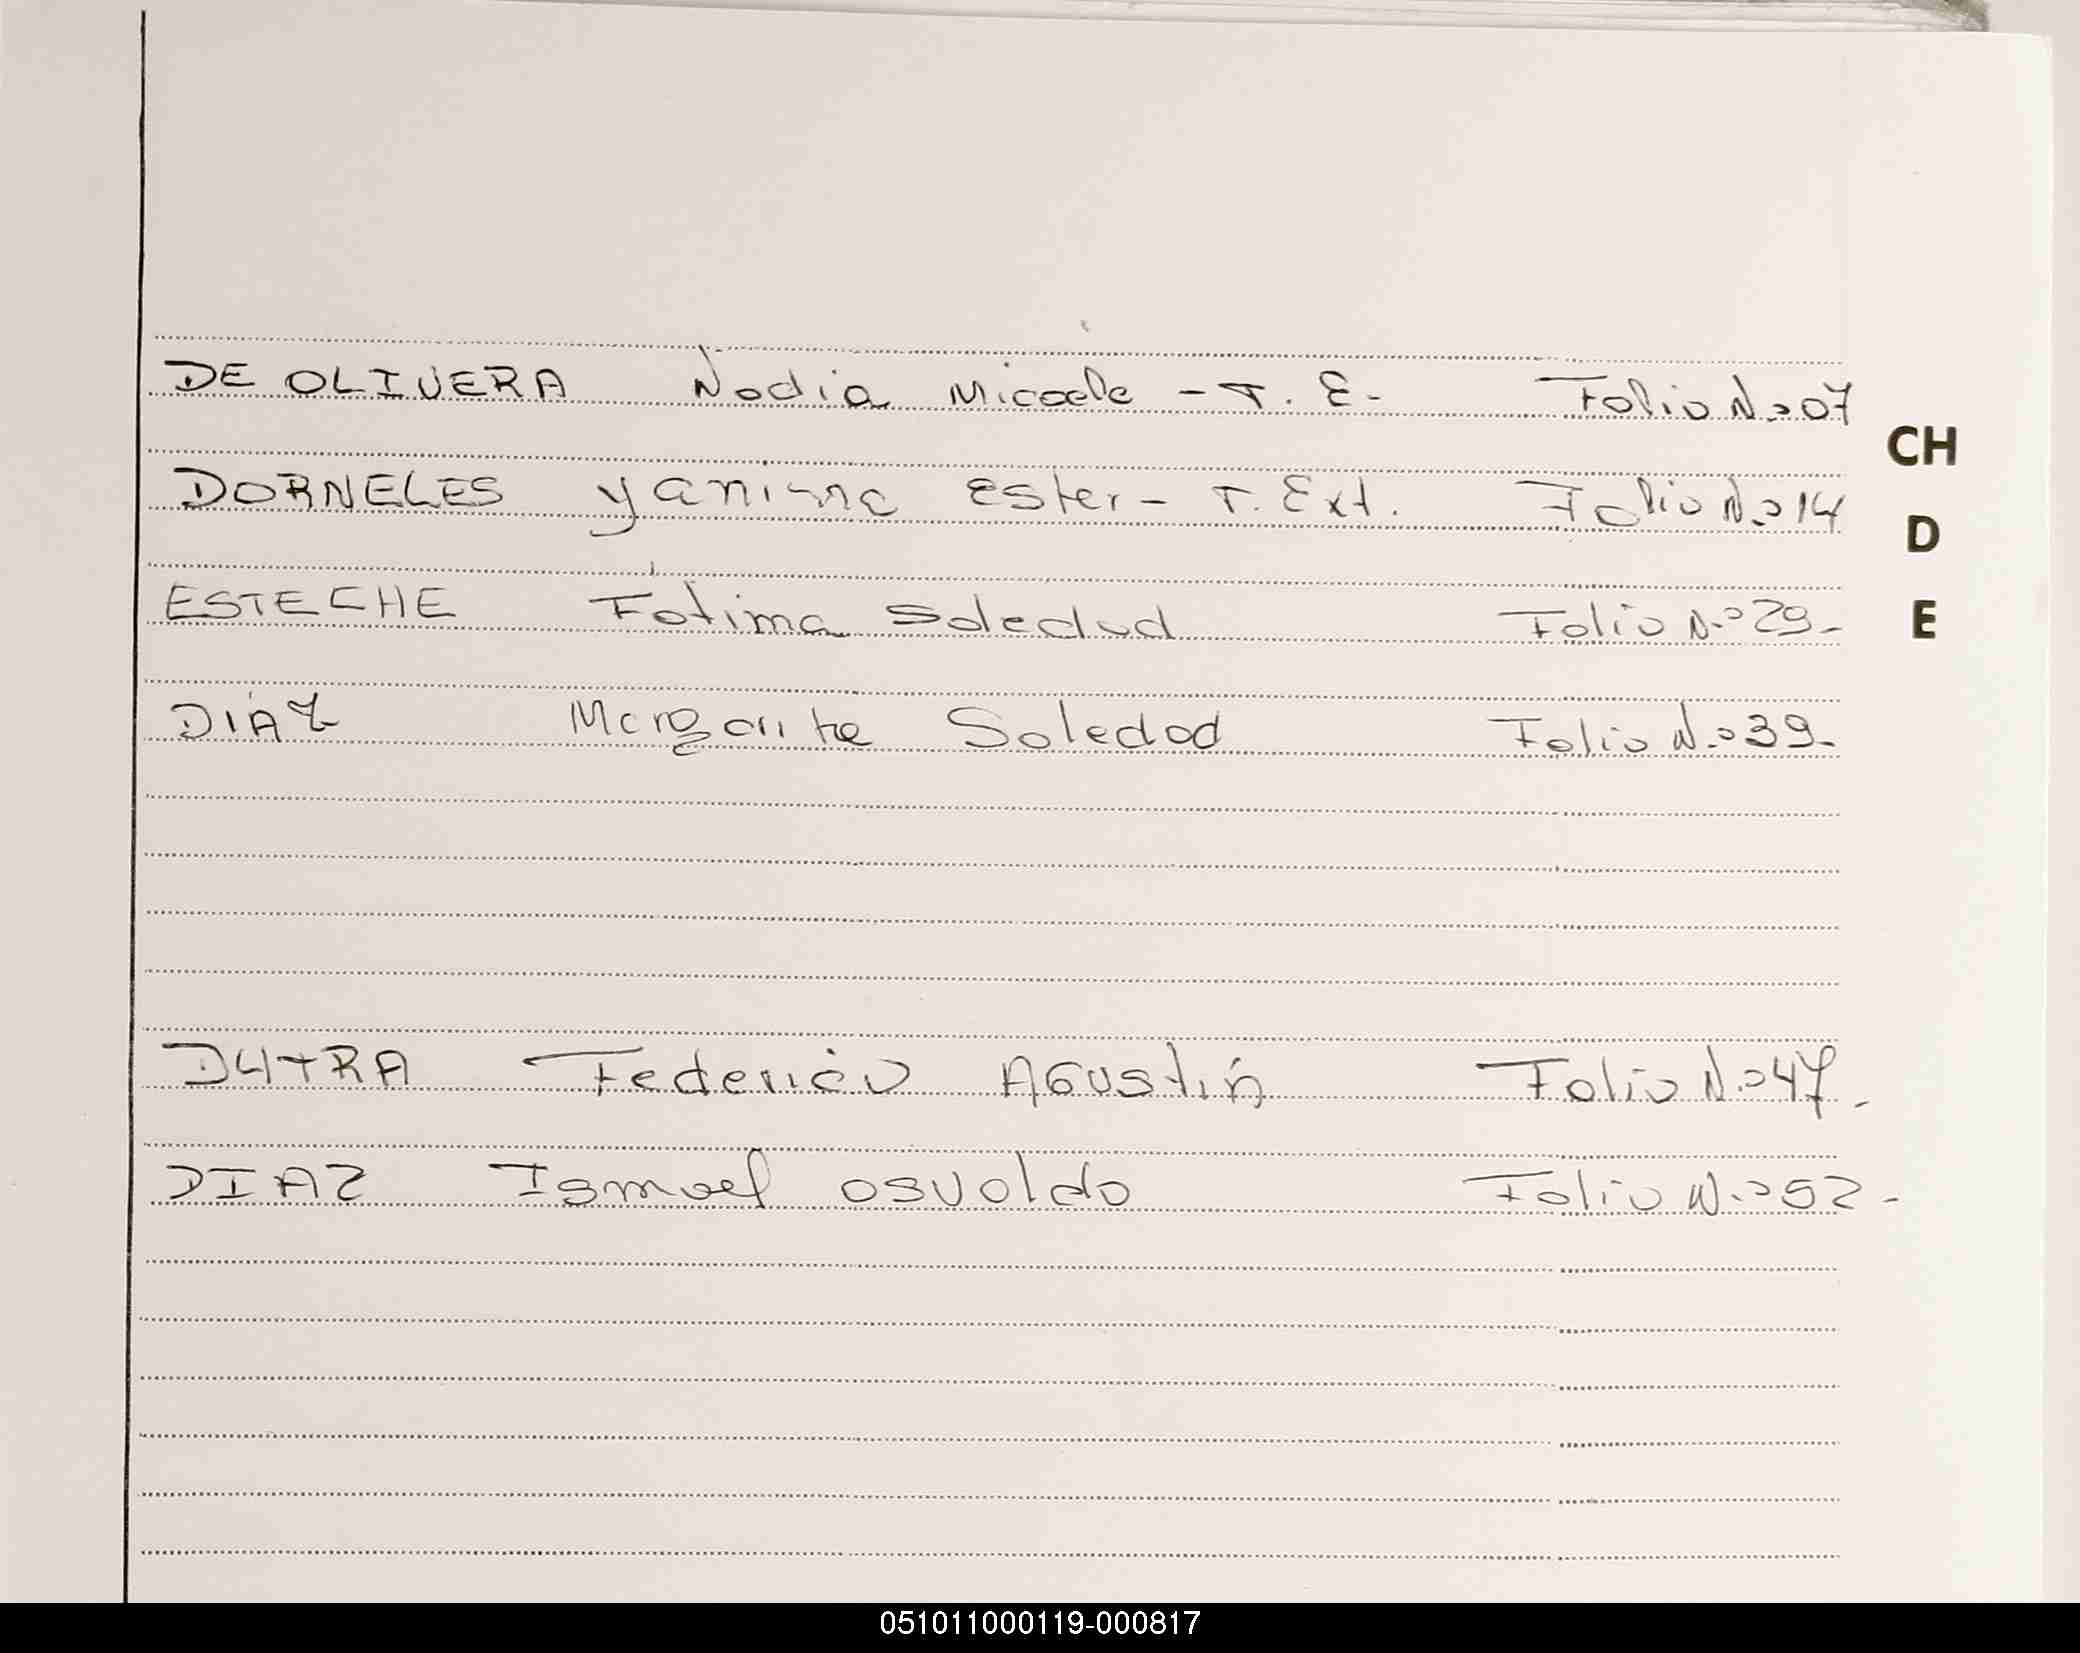 DE OLIVERA Nadia Micaela - T. E. Folio N.º 07
CH
DORNELES Yanina Ester - T. Ext. Folio N.º 14
D
ESTECHE Fatima Soledad Folio N.º 29-
E
DIAZ Margarita Soledad Folio N.º 39-
DUTRA Federico Agustin Folio N.º 47-
DIAZ Ismael Osvaldo Folio N.º 52-
051011000119-000817